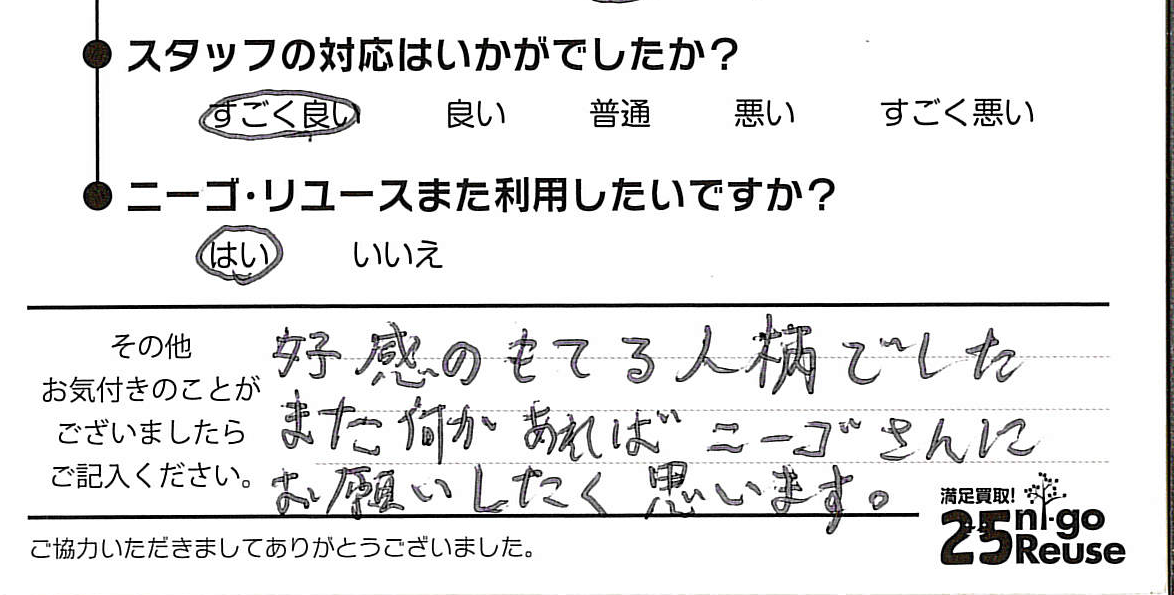 スタッフの対応はいかがでしたか？
すごく良い 良い 普通 悪い すごく悪い
ニーゴ・リユースまた利用したいですか？
はい いいえ
その他
お気付きのことが
ございましたら
ご記入ください。
好感のもてる人柄でした
また何かあればニーゴさんに
お願いしたく思います。
満足買取!
25 ni-go
Reuse
ご協力いただきましてありがとうございました。